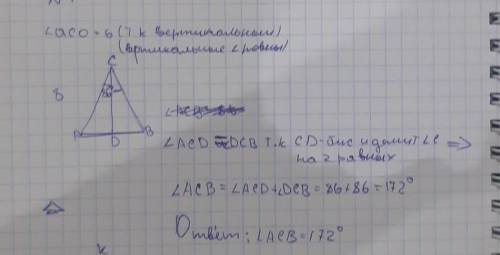 ∠ACO = 6 (т.к вертикальным)
(вертикальные ∠ равны)
C
86
8
A D B
∠ACD = DCB т.к CD-бис и делит ∠C =>
на 2 равных
∠ACB = ∠ACD + ∠DCB = 86 + 86 = 172°
Ответ: ∠ACB = 172°
K